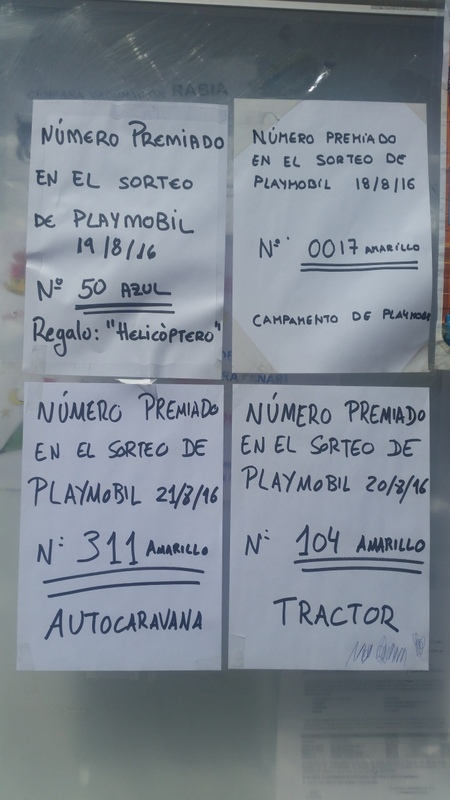 CAMPAÑA VACUNACIÓN RABIA
NÚMERO PREMIADO
EN EL SORTEO
DE PLAYMOBIL
19/8/16
Nº 50 AZUL
Regalo: "HELICÓPTERO"
NÚMERO PREMIADO
EN EL SORTEO DE
PLAYMOBIL 18/8/16
Nº 0017 AMARILLO
CAMPAMENTO DE PLAYMOBI
NÚMERO PREMIADO
EN EL SORTEO DE
PLAYMOBIL 21/8/16
Nº 311 AMARILLO
AUTOCARAVANA
NÚMERO PREMIADO
EN EL SORTEO DE
PLAYMOBIL 20/8/16
Nº 104 AMARILLO
TRACTOR